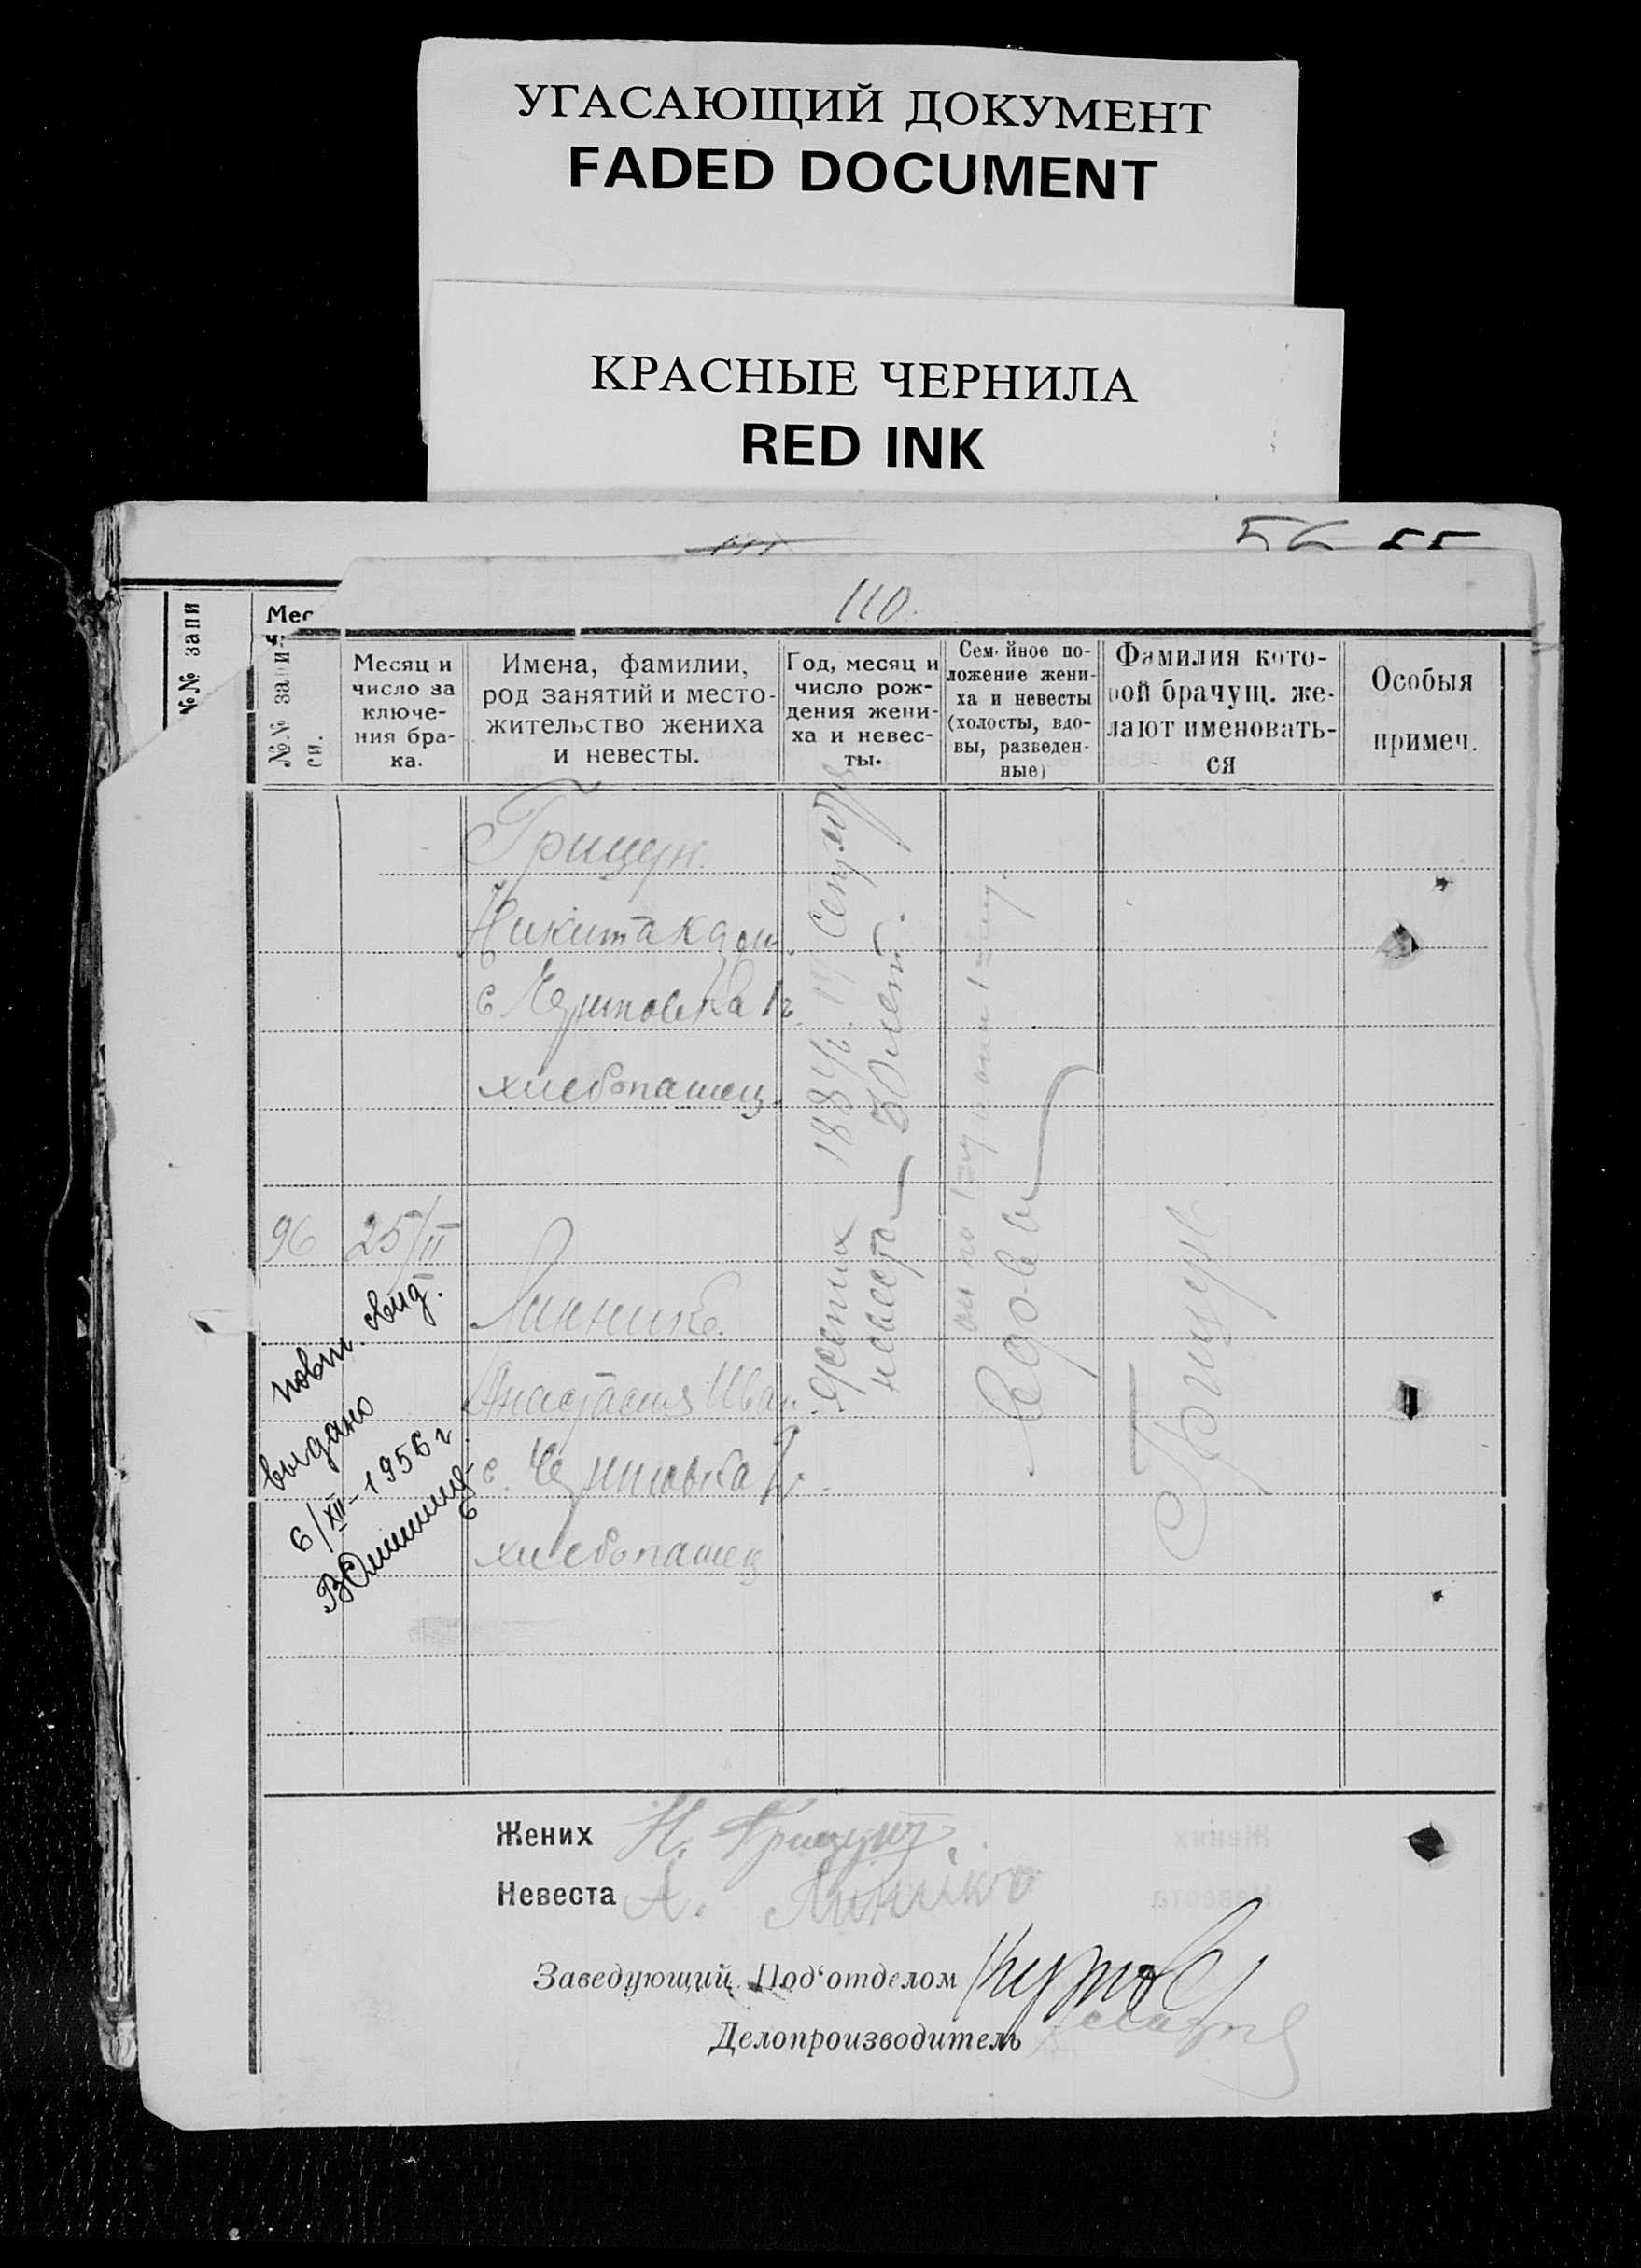 УГАСАЮЩИЙ ДОКУМЕНТ
FADED DOCUMENT
КРАСНЫЕ ЧЕРНИЛА
RED INK
56 55
110.
№№ запи
Мес
№№ запи-
си.
Месяц и
число за
ключе-
ния бра-
ка.
Имена, фамилии,
род занятий и место-
жительство жениха
и невесты.
Год, месяц и
число рож-
дения жени-
ха и невес-
ты.
Сем йное по-
ложение жени-
ха и невесты
(холосты, вдо-
вы, разведен-
ные)
Фамилия кото-
рой брачущ. же-
лают именовать-
ся
Особыя
примеч.
Грицун.
Никита
с Черниговка
хлебопашец.
96 25/II
Линник
Анастасия Иван.
с. Черниговка
хлебопашец
жених 188
невеста 30 лет.
Вдовы
Грицун
повт. свид.
выдано
6/XII-1956 г
Жених Н. Грицун
Невеста А. Линник
Заведующий Под'отделом
Делопроизводитель